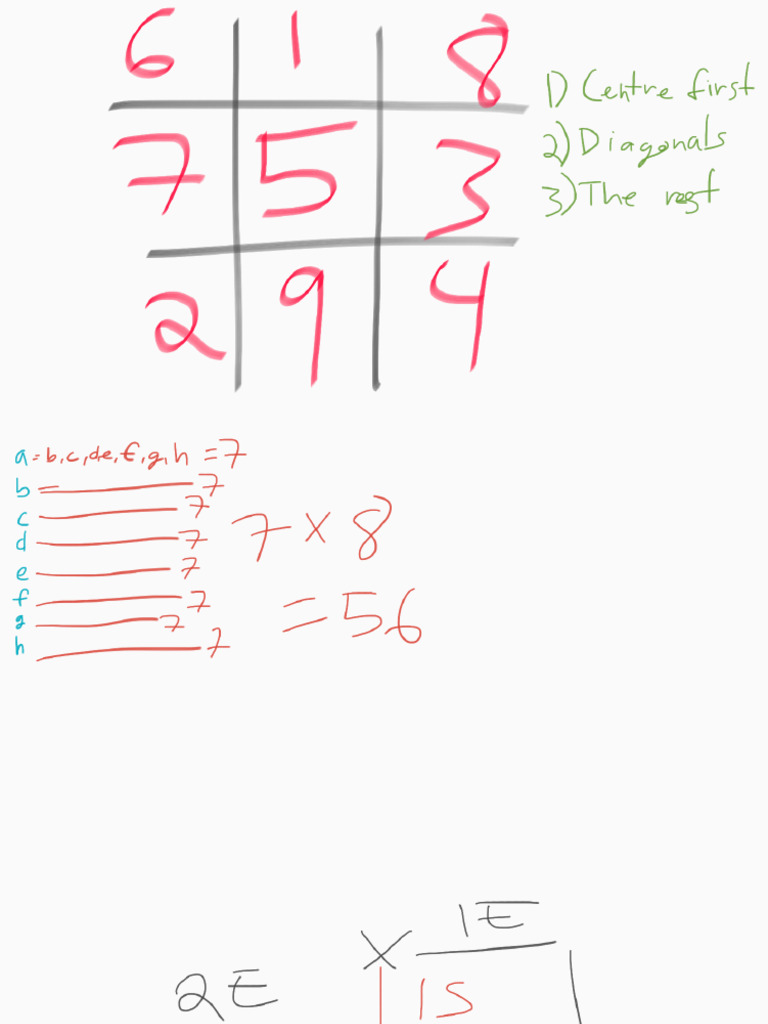 6 1 8
7 5 3
2 9 4
1) Centre first
2) Diagonals
3) The rest
a = b, c, d, e, f, g, h = 7
b = 7
c 7
d 7
e 7
f 7
g 7
h 7
7 x 8
= 56
1E
X
2E
1S